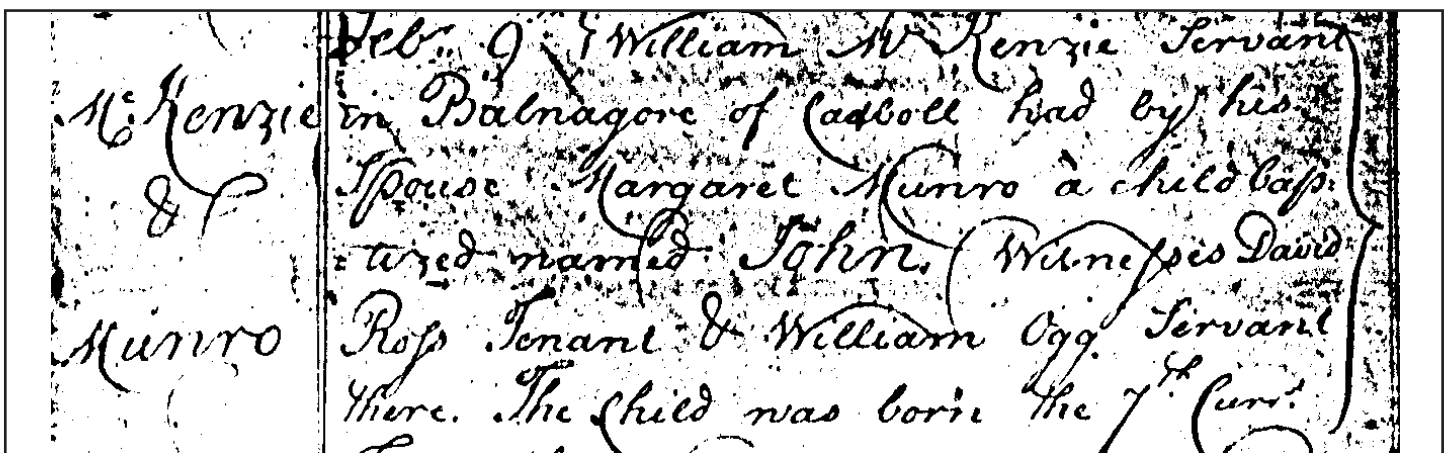 McKenzie
&
Munro
Febr. 9 William McKenzie Servant
in Balnagore of Cadboll had by his
Spouse Margaret Munro a child bap:
:tized named John. Witnesses David
Ross Tenant & William Ogg Servant
there. The Child was born the 7th Curr.t